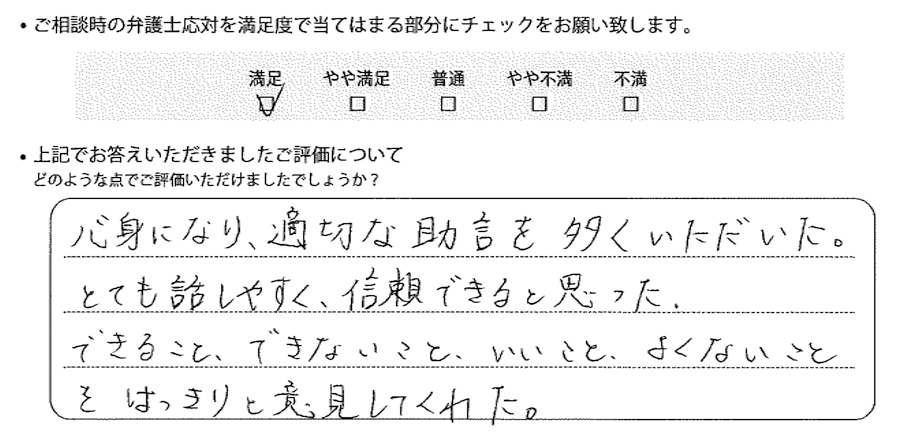 ・ご相談時の弁護士応対を満足度で当てはまる部分にチェックをお願い致します。
満足 やや満足 普通 やや不満 不満
・上記でお答えいただきましたご評価について
どのような点でご評価いただけましたでしょうか？
心身になり、適切な助言を多くいただいた。
とても話しやすく、信頼できると思った.
できること、できないこと、いいこと、よくないこと
をはっきりと意見してくれた。